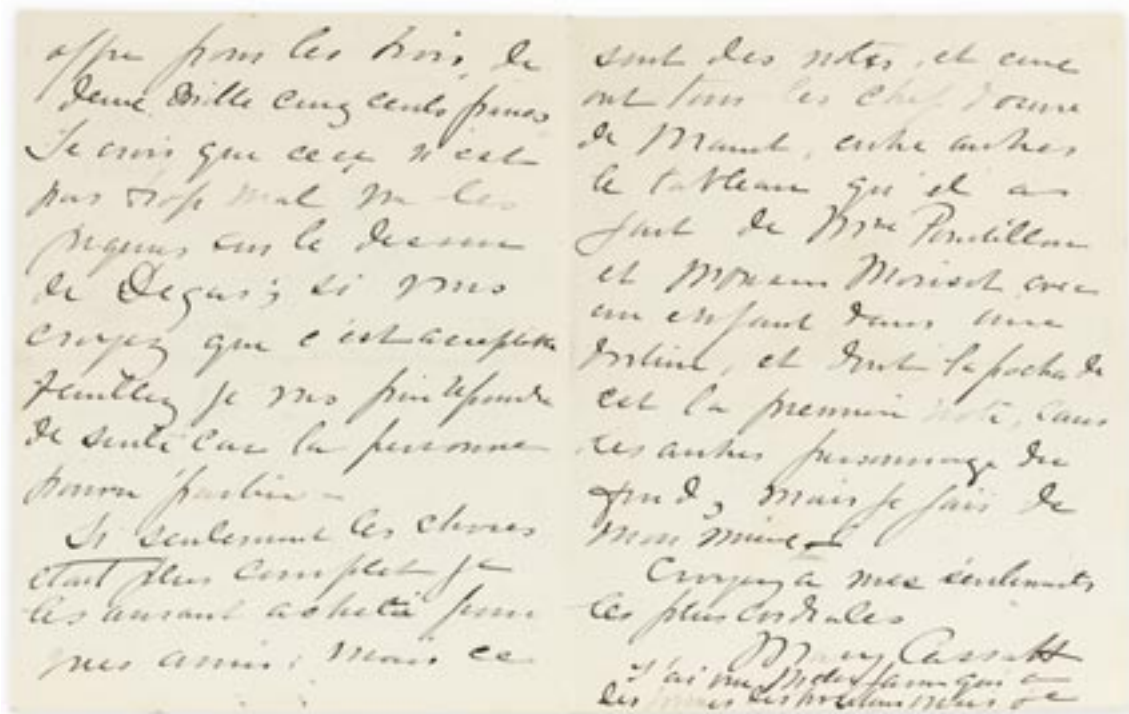 offre pour les trois, de
deux mille cinq cents francs
Je crois que ceci n'est
pas trop mal vu les
sur le dessin
de Degas; si vous
croyez que c'est acceptable
veuillez je vous prie répondre
de suite car la personne
pourra partir -
Si seulement les choses
était plus complet je
les aurait acheté pour
mes amis; mais ce
sont des notes, et eux
ont tous les chef d'œuvre
de Manet, entre autres
le tableau qu'il a
fait de Mme Pontillon
et Morisot avec
un enfant dans une
et dont la pochade
est la premier note, sans
les autres personnage du
fond, mais je fais de
mon mieux -
Croyez à mes sentiments
les plus cordiales
Mary Cassatt
J'ai vu qui a
des